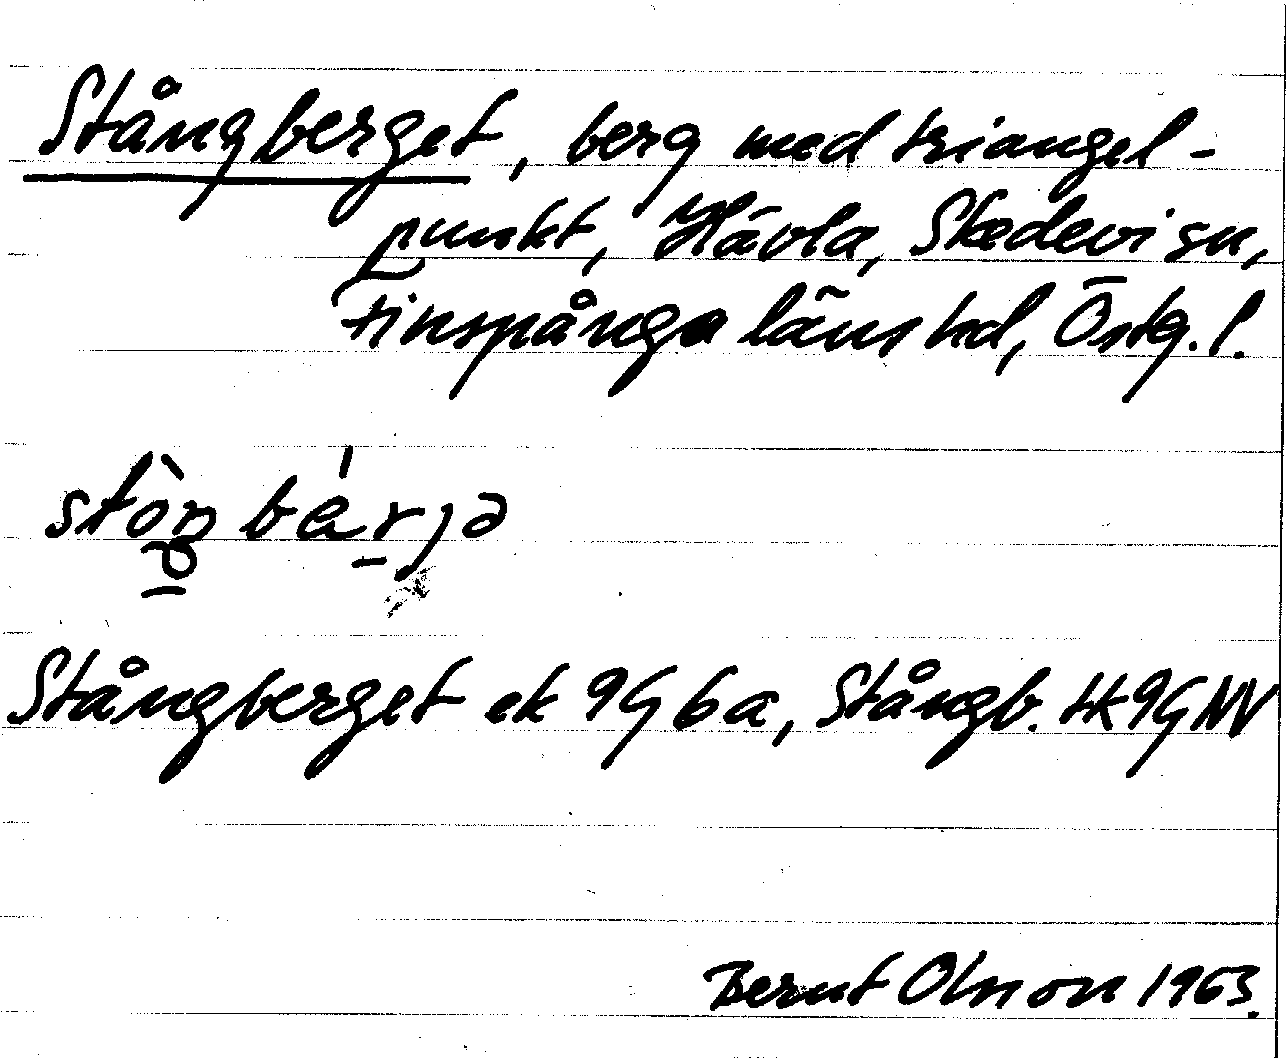 Stångberget, berg med triangel-
punkt, Hävla, Skedevi sn,
Finspånga läns hd, Östg. l.
stòŋ bá rjə
Stångberget ek 9G 6a, Stångb. HK 9G NV
Bernt Olsson 1963.